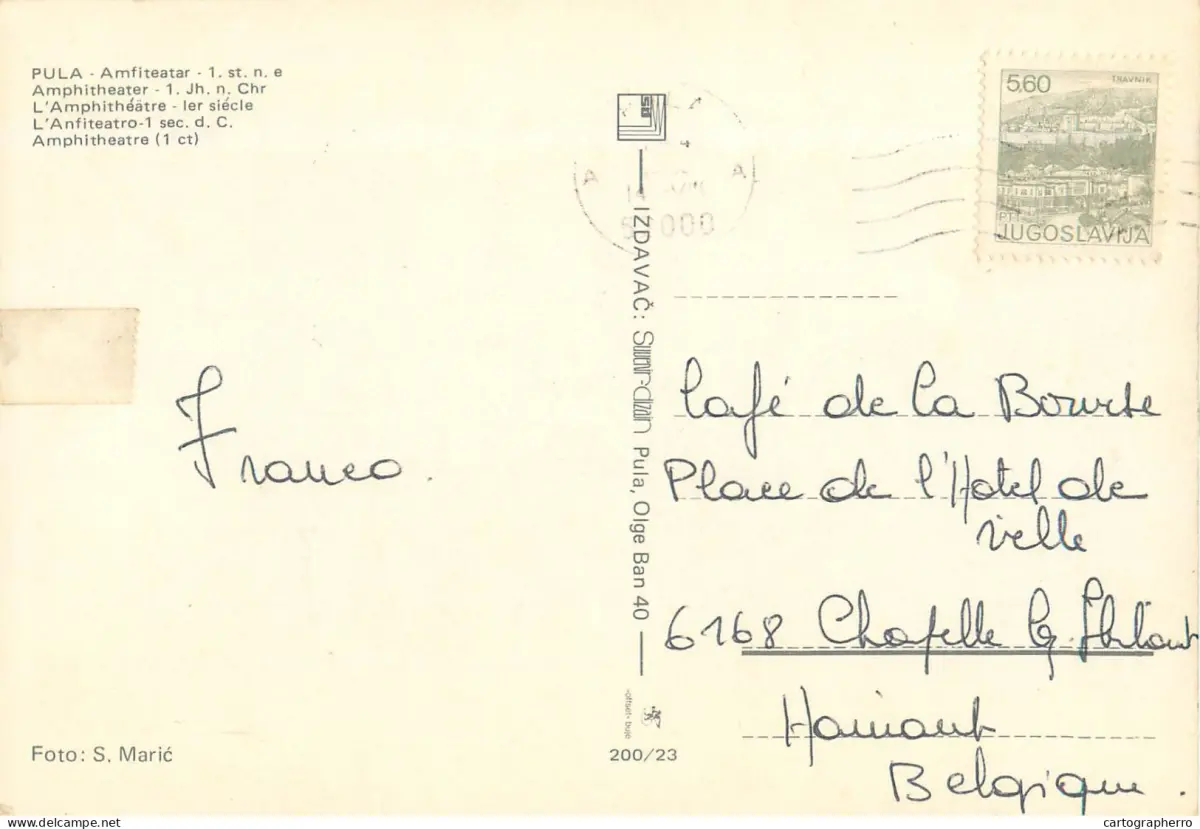 PULA - Amfiteatar - 1. st. n. e
Amphitheater - 1. Jh. n. Chr
L'Amphithéâtre - Ier siécle
L'Anfiteatro-1 sec. d. C.
Amphitheatre (1 ct)
5,60
TRAVNIK
PTT
JUGOSLAVIJA
A
A
000
IZDAVAČ: Suvenir-dizajn Pula, Olge Ban 40
Franco.
Café de la Bourse
Place de l'Hotel de
ville
6168 Chapelle lg. Herlaimont
Hainaut
Belgique.
Foto: S. Marić
offset - buje
200/23
www.delcampe.net
cartographerro